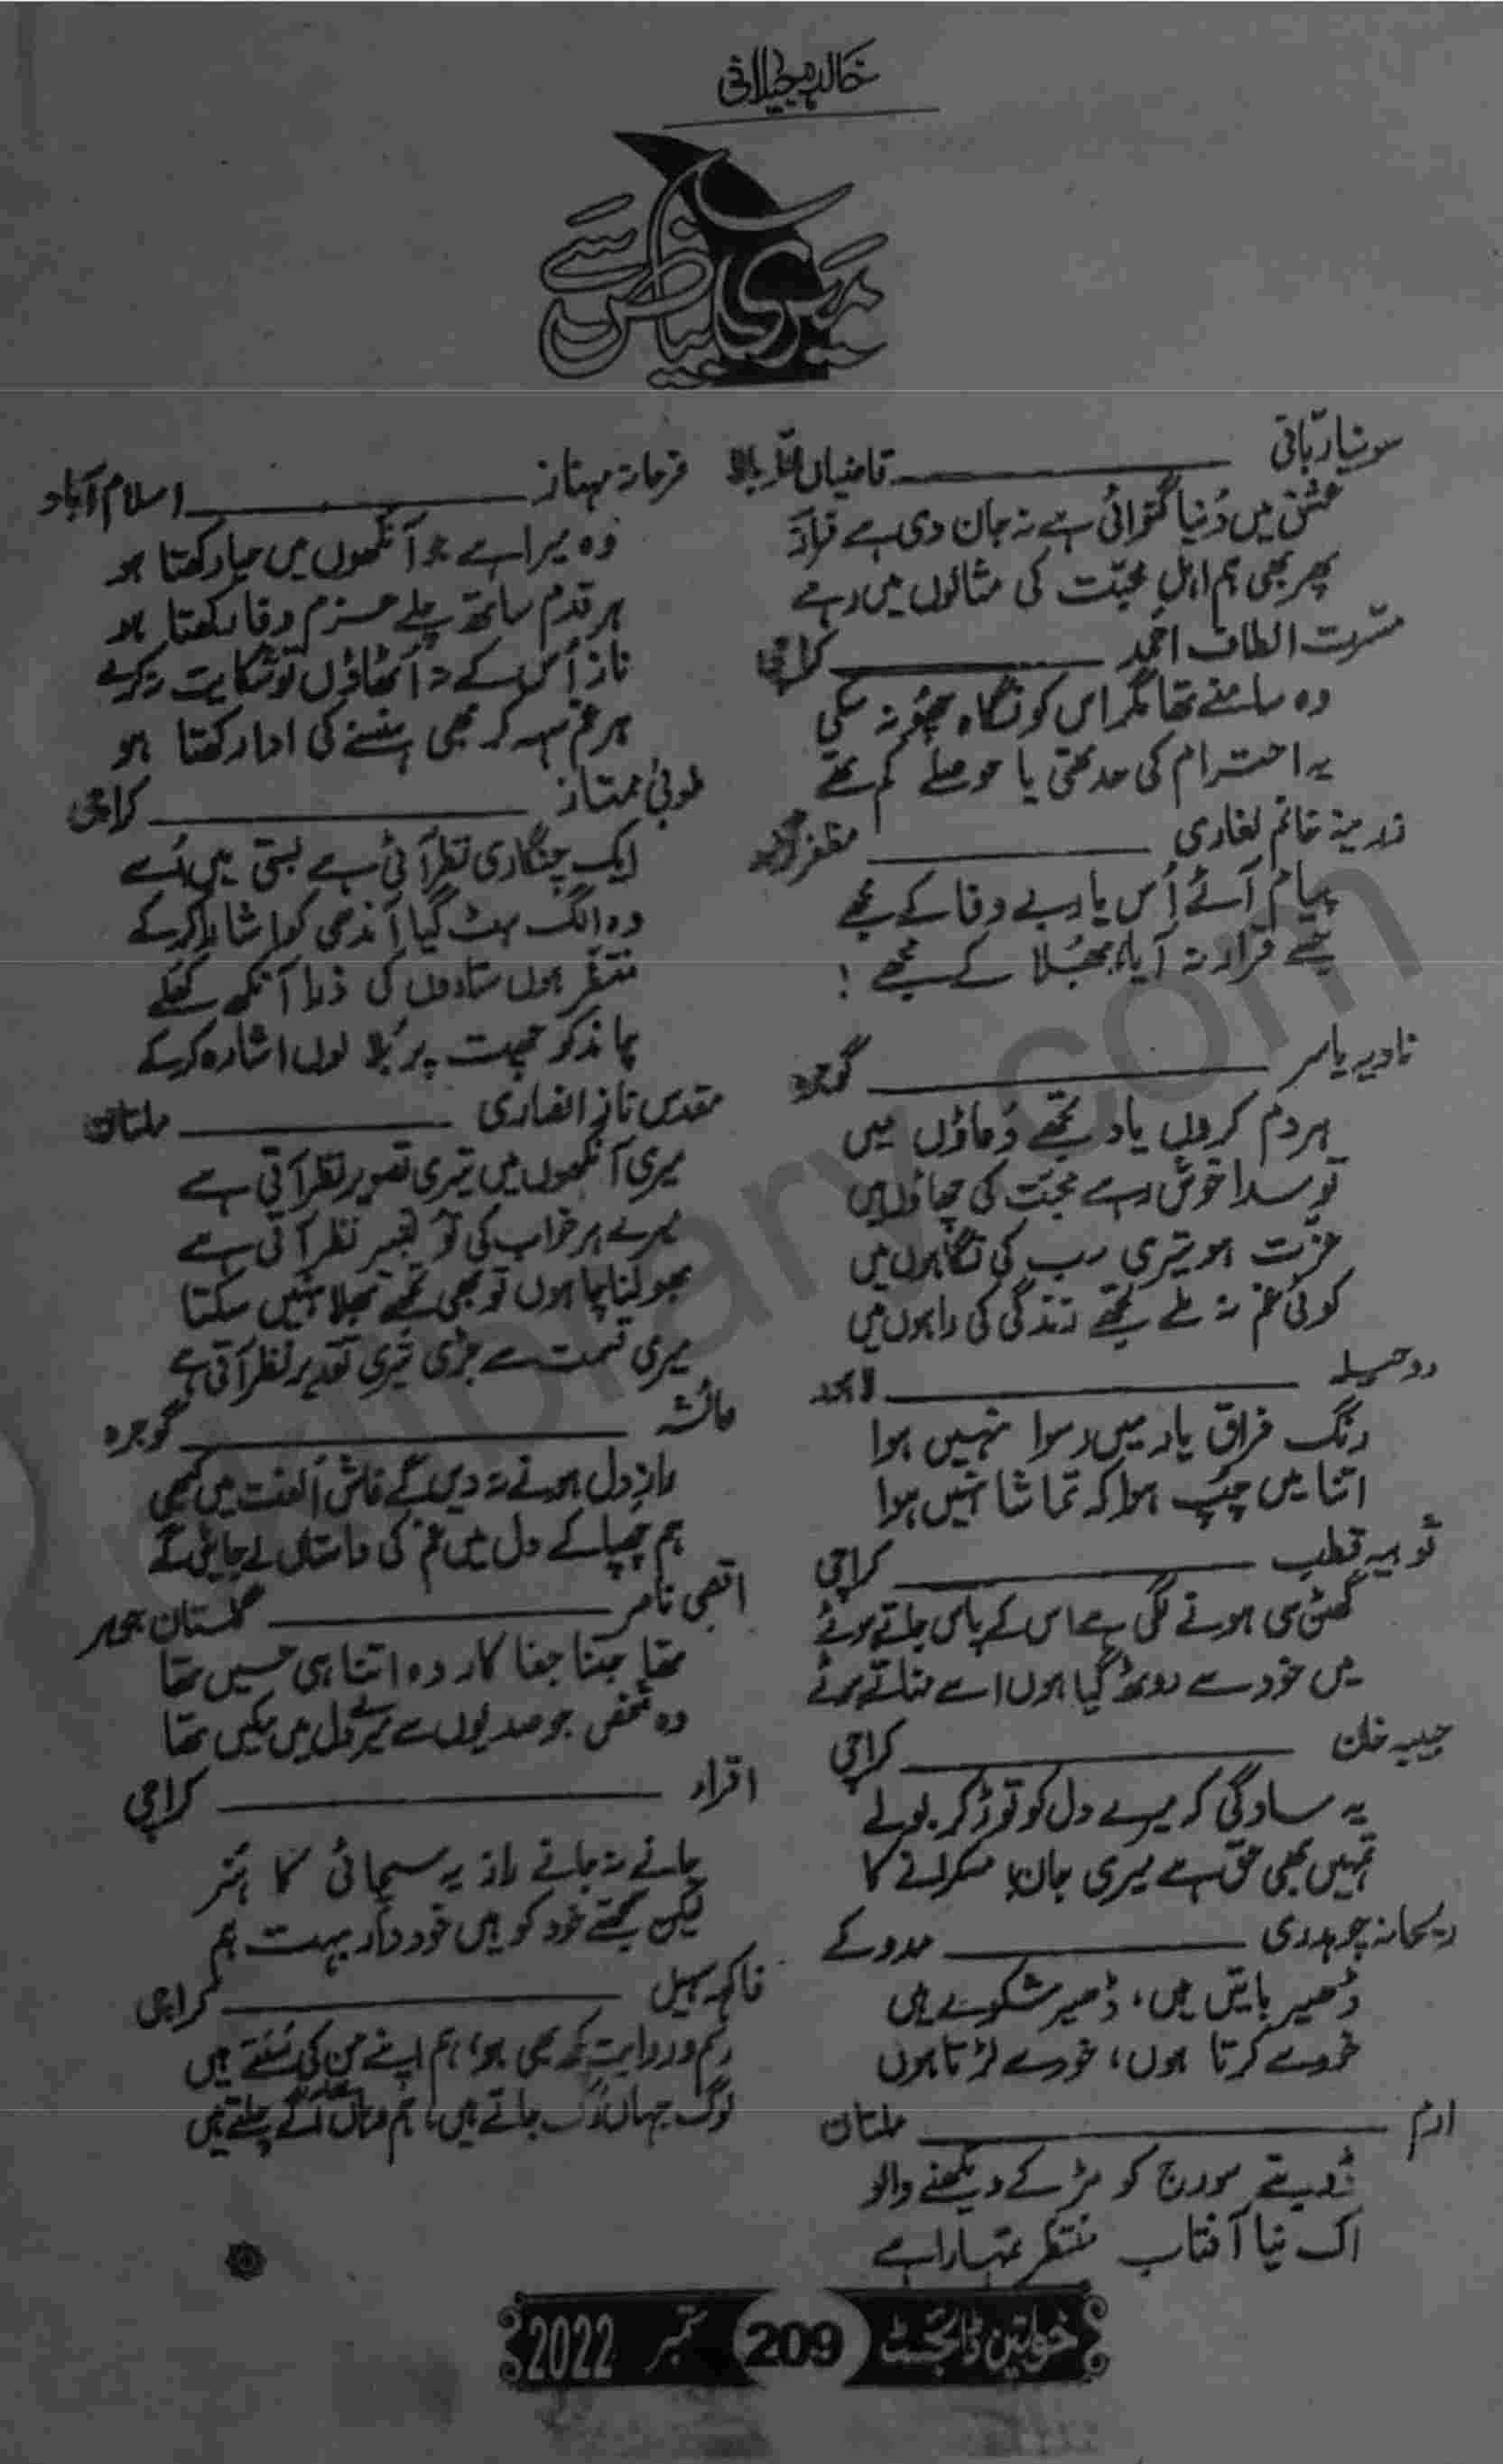 خالدہ جیلانی
میری بیاض سے
سونیا ربانی ــــــ قاضیاں
عشق میں دنیا گنوائی ہے نہ جان دی ہے فراز
پھر بھی ہم اہلِ محبت کی مثالوں میں رہے
مسرت الطاف احمد ــــــ کراچی
وہ سامنے تھا مگر اس کو نگاہ چھو نہ سکی
یہ احترام کی حد تھی یا حوصلے کم تھے
زرمینہ خانم لغاری ــــــ مظفر گڑھ
پیام آئے اُس یار بے وفا کے مجھے
جسے قرار نہ آیا، بھلا کے مجھے !
نادیہ یاسر ــــــ گوجرہ
ہر دم کروں یاد تجھے دعاؤں میں
تو سدا خوش رہے محبت کی چھاؤں میں
عزت ہو تیری رب کی نگاہوں میں
کوئی غم نہ ملے تجھے زندگی کی راہوں میں
روحیلہ ــــــ لاہور
رنگ فراق یار میں رسوا نہیں ہوا
اتنا میں چپ ہوا کہ تماشا نہیں ہوا
ثوبیہ قطب ــــــ کراچی
گھٹن سی ہونے لگی ہے اس کے پاس جاتے ہوئے
میں خود سے روٹھ گیا ہوں اسے مناتے ہوئے
حبیبہ خان ــــــ کراچی
یہ سادگی کہ میرے دل کو توڑ کر بولے
تمہیں بھی حق ہے میری جان! مسکرانے کا
ریحانہ چوہدری ــــــ مدوکے
ڈھیر باتیں ہیں، ڈھیر شکوے ہیں
خود سے کرتا ہوں، خود سے لڑتا ہوں
ارم ــــــ ملتان
ڈوبتے سورج کو مڑ کے دیکھنے والو
اک نیا آفتاب منتظر تمہارا ہے
فرحانہ مہتاز ــــــ اسلام آباد
وہ میرا ہے جو آنکھوں میں حیا رکھتا ہو
ہر قدم ساتھ چلے عزم وفا رکھتا ہو
ناز اُس کے نہ اُٹھاؤں تو شکایت نہ کرے
ہر غم سہہ کر بھی ہنسنے کی ادا رکھتا ہو
طوبیٰ ممتاز ــــــ کراچی
ایک چنگاری نظر آئی ہے بستی میں اُسے
وہ الگ ہٹ گیا آندھی کو اشارہ کر کے
منتظر ہوں ستاروں کی ذرا آنکھ کھلے
چاند کو چھت پر بُلا لوں اشارہ کر کے
مقدس ناز انصاری ــــــ ملتان
میری آنکھوں میں تیری تصویر نظر آتی ہے
میرے ہر خواب کی تو تعبیر نظر آتی ہے
بھولنا چاہوں تو بھی تجھے بھلا نہیں سکتا
میری قسمت سے جڑی تیری تقدیر نظر آتی ہے
عائشہ ــــــ گوجرہ
راز دل ہونے نہ دیں گے فاش اُلفت میں کبھی
ہم چھپا کے دل میں غم کی داستاں لے جائیں گے
اقصیٰ ناصر ــــــ گلستان جوہر
تھا جتنا جفا کار وہ اتنا ہی حسیں تھا
وہ شخص جو صدیوں سے میرے دل میں مکیں تھا
اقراء ــــــ کراچی
جانے نہ جانے راز یہ مسیحائی کا ہنر
لیکن سمجھتے خود کو ہیں خوددار بہت ہم
فاکہہ سہیل ــــــ کراچی
رسم و روایت کچھ بھی ہو، ہم اپنے من کی سنتے ہیں
لوگ جہاں رُک جاتے ہیں، ہم وہاں سے آگے چلتے ہیں
خواتین ڈائجسٹ 209 ستمبر 2022